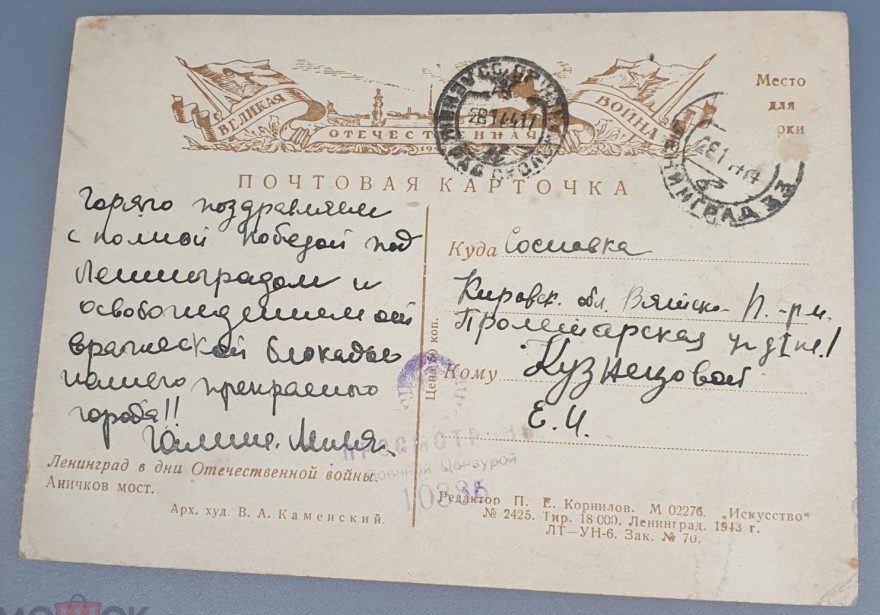 ВЕЛИКАЯ
ОТЕЧЕСТВЕННАЯ
ВОЙНА
Место
для
рки
28144
ЛЕНИНГРАД 33
ПОЧТОВАЯ КАРТОЧКА
Горячо поздравляем
с полной победой под
Ленинградом и
освобождением от
вражеской блокады
нашего прекрасного
города!!
Галина. Миля
Куда Сосновка
Кировск. обл. Вятско-П. р-н.
Пролетарская ул
Кому Кузнецовой
Е.И.
Цена 60 коп.
ПРОСМОТРЕНО
Военной Цензурой
10388
Ленинград в дни Отечественной войны.
Аничков мост.
Арх. худ. В. А. Каменский.
Редактор П. Е. Корнилов. М 02276. „Искусство“
№ 2425. Тир. 18 000. Ленинград. 1943 г.
ЛТ—УН-6. Зак. № 70.